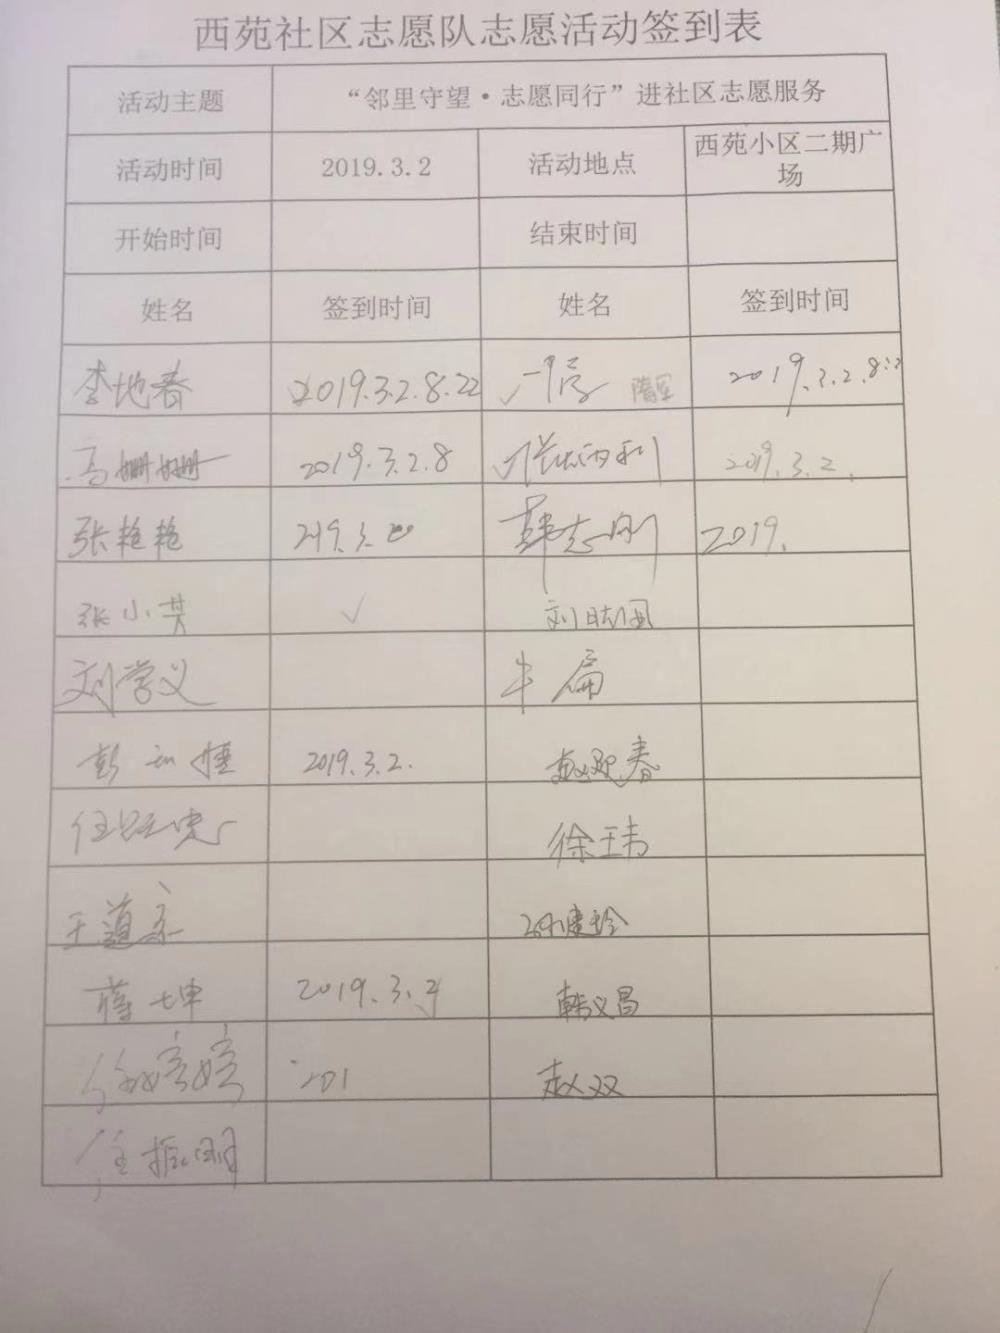 西苑社区志愿队志愿活动签到表
活动主题 “邻里守望·志愿同行”进社区志愿服务
活动时间 2019.3.2 活动地点 西苑小区二期广
场
开始时间 结束时间
姓名 签到时间 姓名 签到时间
李地春 2019.3.2.8.22 隋军 2019.3.2.8:2
高姗姗 2019.3.2.8 2019.3.2.
张艳艳 219.3. 韩志刚 2019.
张小英 ✓ 刘
刘学义 牛扁
彭 2019.3.2. 赵迎春
任 徐玉玮
王道京 孙建玲
蒋坤 2019.3.2 韩义昌
徐婷婷 201 赵双
任振刚